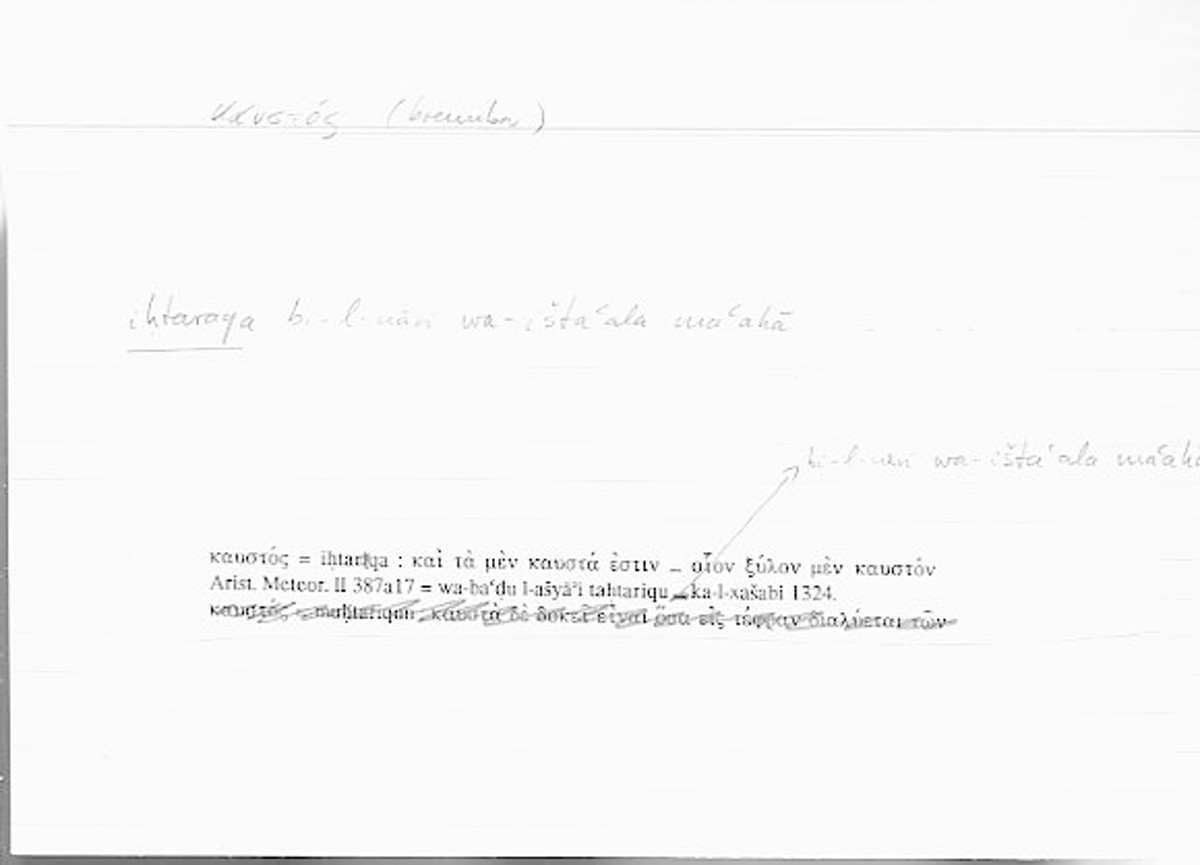 καυστός (brennbar)
iḥtaraqa bi-l-nāri wa-ištaʿala maʿahā
bi-l-nāri wa-ištaʿala maʿahā
καυστός = iḥtaraqa : καὶ τὰ μὲν καυστά ἐστιν _ οἷον ξύλον μὲν καυστόν
Arist. Meteor. II 387a17 = wa-baʿḍu l-ašyāʾi taḥtariqu _ ka-l-xašabi 1324.
καυστός = muḥtariqun : καυστὰ δὲ δοκεῖ εἶναι ὅσα εἰς τέφραν διαλύεται τῶν